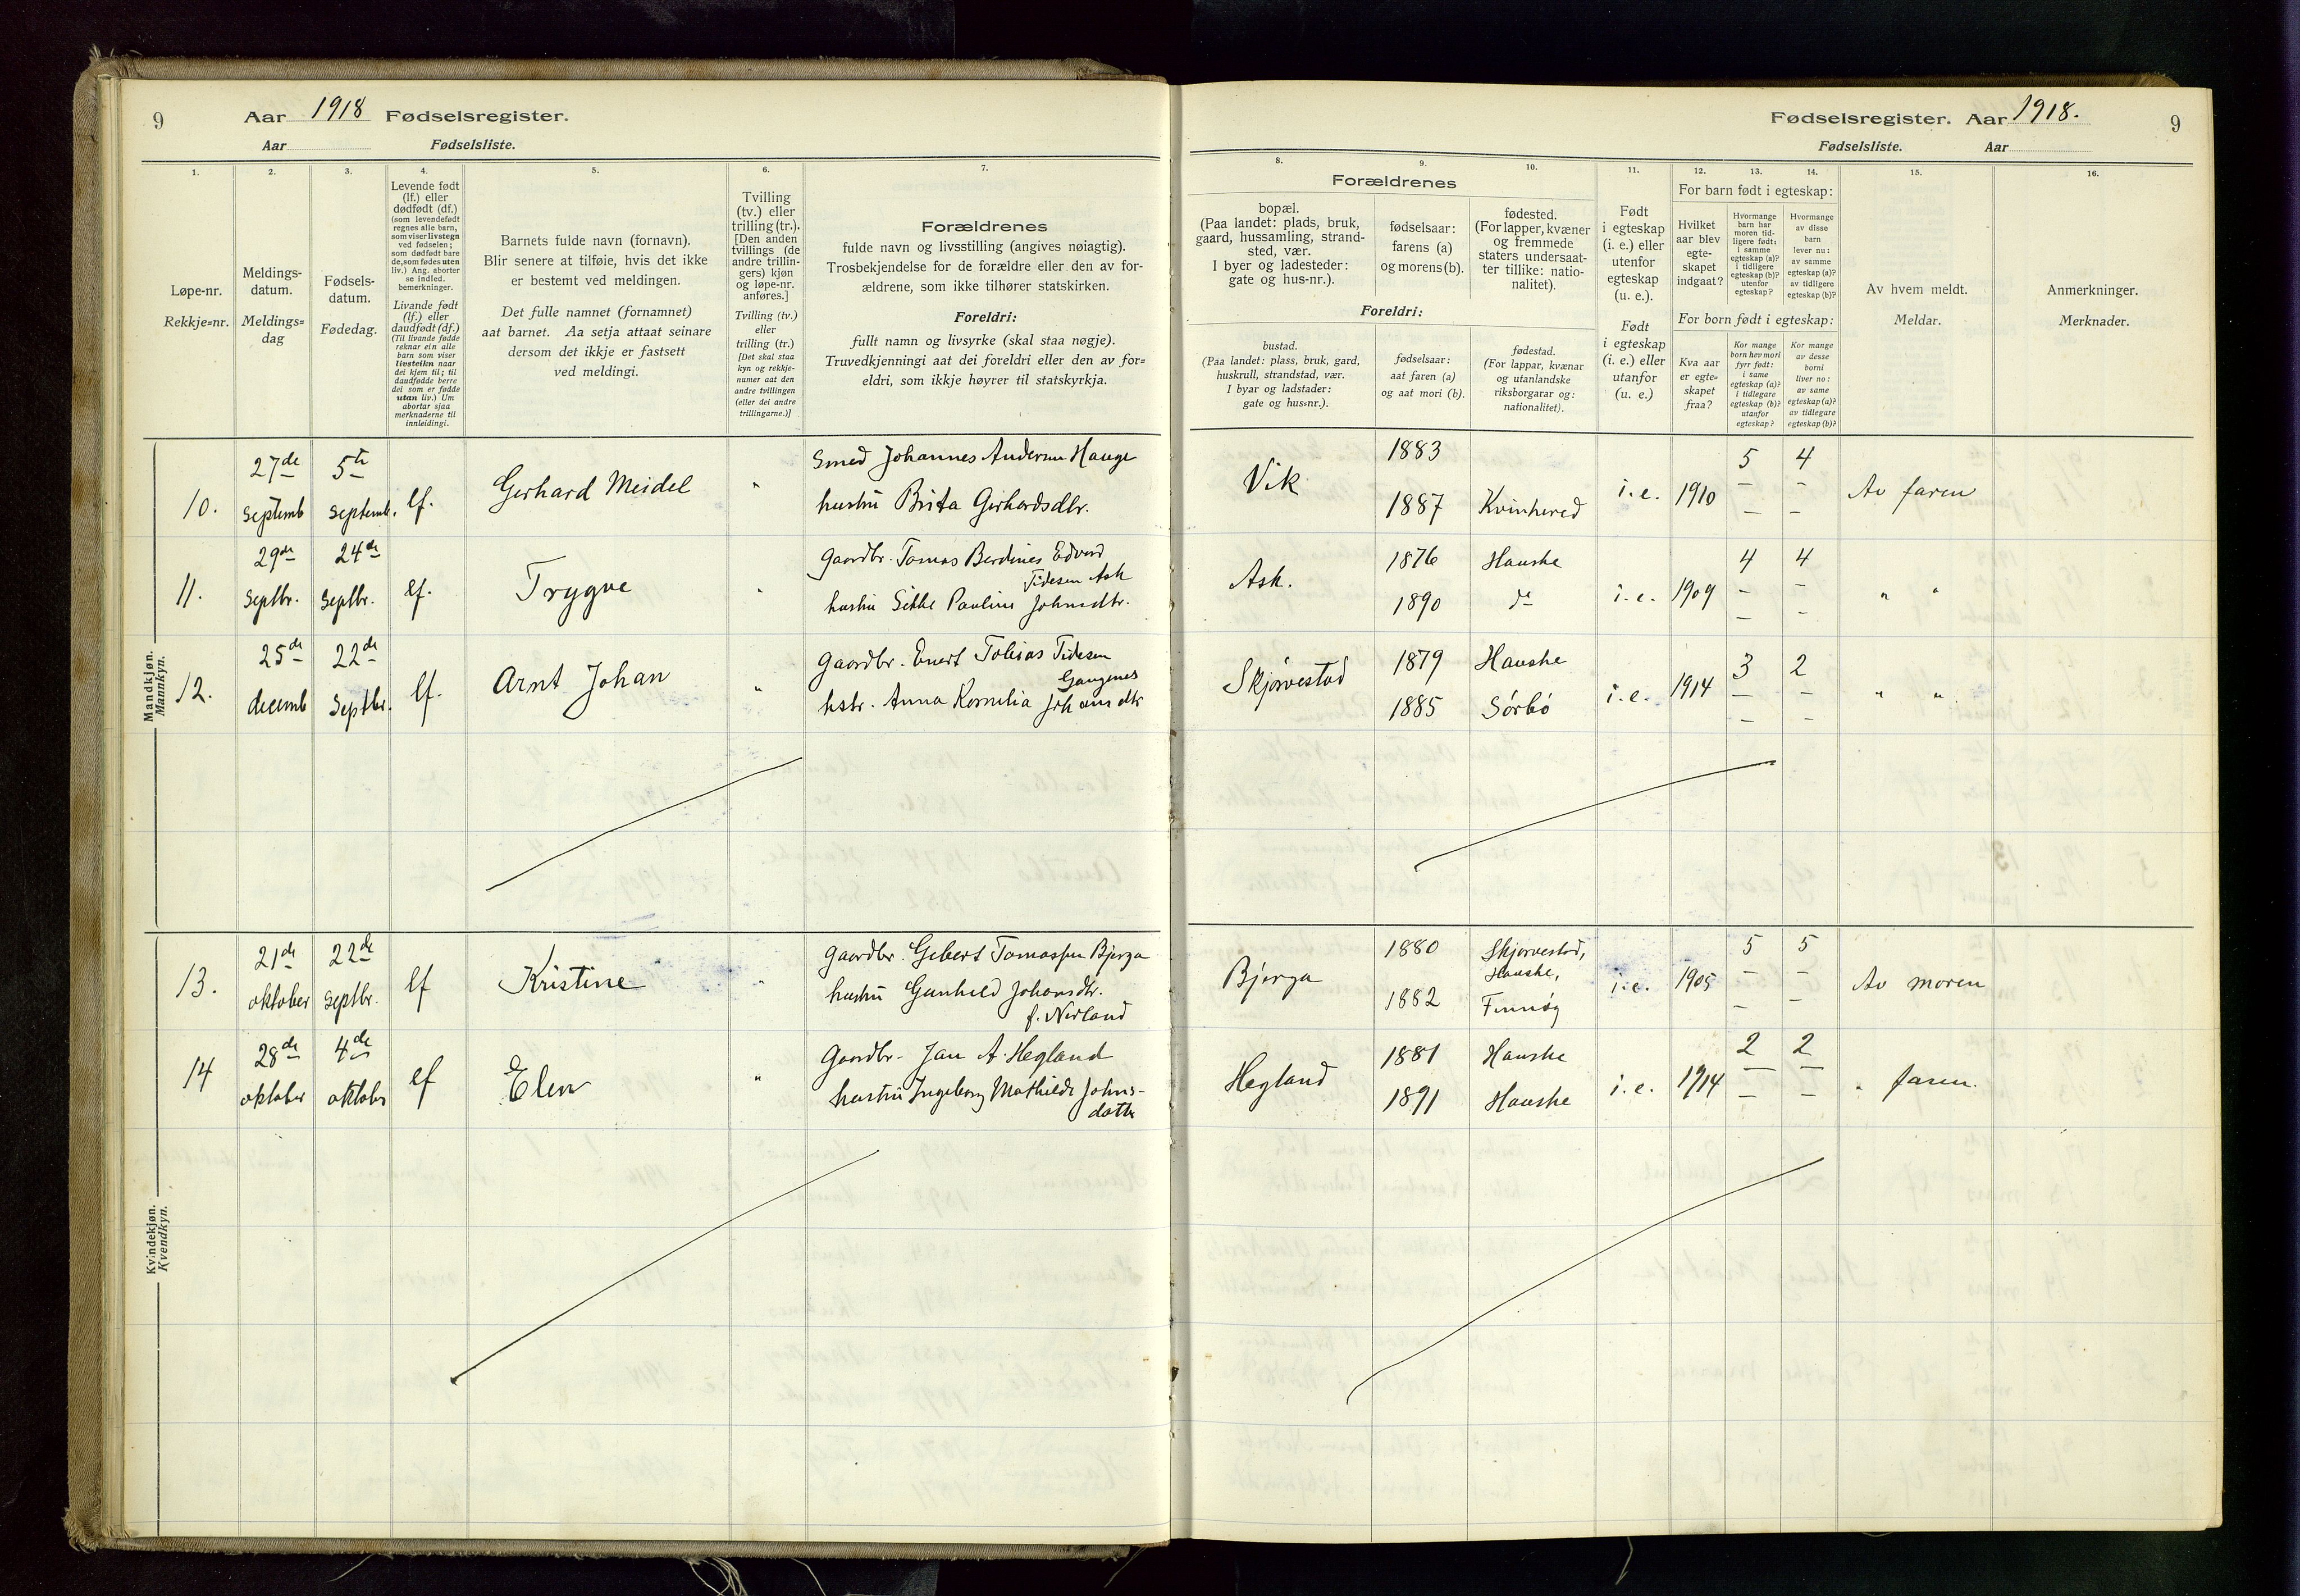 9
Aar 1918 Fødselsregister.
Aar Fødselsliste.
1.
2.
3.
4.
5.
6.
7.
Løpe-nr.
Rekkje=nr.
Meldings-
datum.
Meldings=
dag
Fødsels-
datum.
Fødedag.
Levende født
(lf.) eller
dødfødt (df.)
(som levendefødt
regnes alle barn,
som viser livstegn
ved fødselen;
som dødfødt bare
de, som fødes uten
liv.) Ang. aborter
se indled.
bemerkninger.
Livande født
(lf.) eller
daudfødt (df.)
(Til livande fødde
reknar ein alle
barn som viser
livsteikn naar
dei kjem til; til
daudfødde berre
dei som er fødde
utan liv.) Um
abortar sjaa
merknaderne til
innleidingi.
Barnets fulde navn (fornavn).
Blir senere at tilføie, hvis det ikke
er bestemt ved meldingen.
Det fulle namnet (fornamnet)
aat barnet. Aa setja attaat seinare
dersom det ikkje er fastsett
ved meldingi.
Tvilling
(tv.) eller
trilling (tr.).
[Den anden
tvillings (de
andre trillin-
gers) kjøn
og løpe-nr.
anføres.]
Tvilling (tv.)
eller
trilling (tr.)
[Det skal staa
kyn og rekkje-
numer aat den
andre tvillingen
(eller dei andre
trillingarne.)]
Forældrenes
fulde navn og livsstilling (angives nøiagtig).
Trosbekjendelse for de forældre eller den av for-
ældrene, som ikke tilhører statskirken.
Foreldri:
fullt namn og livsyrke (skal staa nøgje).
Truvedkjenningi aat dei foreldri eller den av for=
eldri, som ikkje høyrer til statskyrkja.
Mandkjøn.
Mannkyn.
10.
27de
septemb
5te
septemb.
lf.
Gerhard Meidel
"
Smed Johannes Andersen Hauge
hustru Brita Gerhardsdtr.
11.
29de
Septbr.
24de
Septbr.
lf.
Trygve
"
Gaardbr. Tomas Berdines Edvard
Tidesen Ask
hustru Sikke Pauline Johnsdtr.
12.
25de
decemb
22de
Septbr.
lf.
Arnt Johan
"
Gaardbr. Enert Tobias Tidesen
Gangenes
hstr. Anna Kornelia Johansdtr
Kvindekjøn.
Kvendkyn.
13.
21de
oktober
22de
Septbr.
lf
Kristine
"
Gaardbr. Gebert Tomassen Bjerga
hustru Gunhild Johansdtr.
f. Nerland
14
28de
oktober
4de
oktober
lf
Elen
"
Gaardbr. Jan A. Hegland
hustru Ingeborg Mathilde Johns-
datter
Fødselsregister. Aar 1918.
9
Fødselsliste. Aar
8.
9.
10.
11.
12.
13.
14.
15.
16.
Forældrenes
bopæl.
(Paa landet: plads, bruk,
gaard, hussamling, strand-
sted, vær.
I byer og ladesteder:
gate og hus-nr.).
fødselsaar:
farens (a)
og morens (b).
fødested.
(For lapper, kvæner
og fremmede
staters undersaat-
ter tillike: natio-
nalitet).
Foreldri:
bustad.
(Paa landet: plass, bruk, gard,
huskrull, strandstad, vær.
I byar og ladstader:
gate og hus=nr.).
fødselsaar:
aat faren (a)
og aat mori (b).
fødestad.
(For lappar, kvænar
og utanlandske
riksborgarar og:
nationalitet).
Født
i egteskap
(i. e.) eller
utenfor
egteskap
(u. e.).
Født
i egteskap
(i. e.) eller
utanfor
(u. e.)
For barn født i egteskap:
Hvilket
aar blev
egte-
skapet
indgaat?
Hvormange
barn har
moren tid-
ligere født:
i samme
egteskap (a)?
i tidligere
egteskap (b)?
utenfor
egteskap?
Hvormange
av disse
barn
lever nu:
av samme
egteskap (a)?
av tidligere
egteskap (b)?
For born født i egteskap:
Kva aar
er egte=
skapet
fraa?
Kor mange
born hev mori
fyrr født:
i same
egteskap (a)?
i tidlegare
egteskap (b)?
utanfor
egteskap?
Kor mange
av desse
borni
liver no:
av same
egteskap (a)?
av tidlegare
egteskap (b)?
Av hvem meldt.
Meldar.
Anmerkninger.
Merknader.
Vik
1883
1887
Kvinhered
i. e.
1910
5
4
Av faren
Ask.
1876
1890
Hauske
do
i. e.
1909
4
4
" "
Skjørvestad
1879
1885
Hauske
Sørbö
i. e.
1914
3
2
" "
Bjerga
1880
1882
Skjørvestad,
Hauske,
Finnöy
i. e.
1905
5
5
Av moren
Hegland
1881
1891
Hauske
Hauske
i. e.
1914
2
2
" faren.